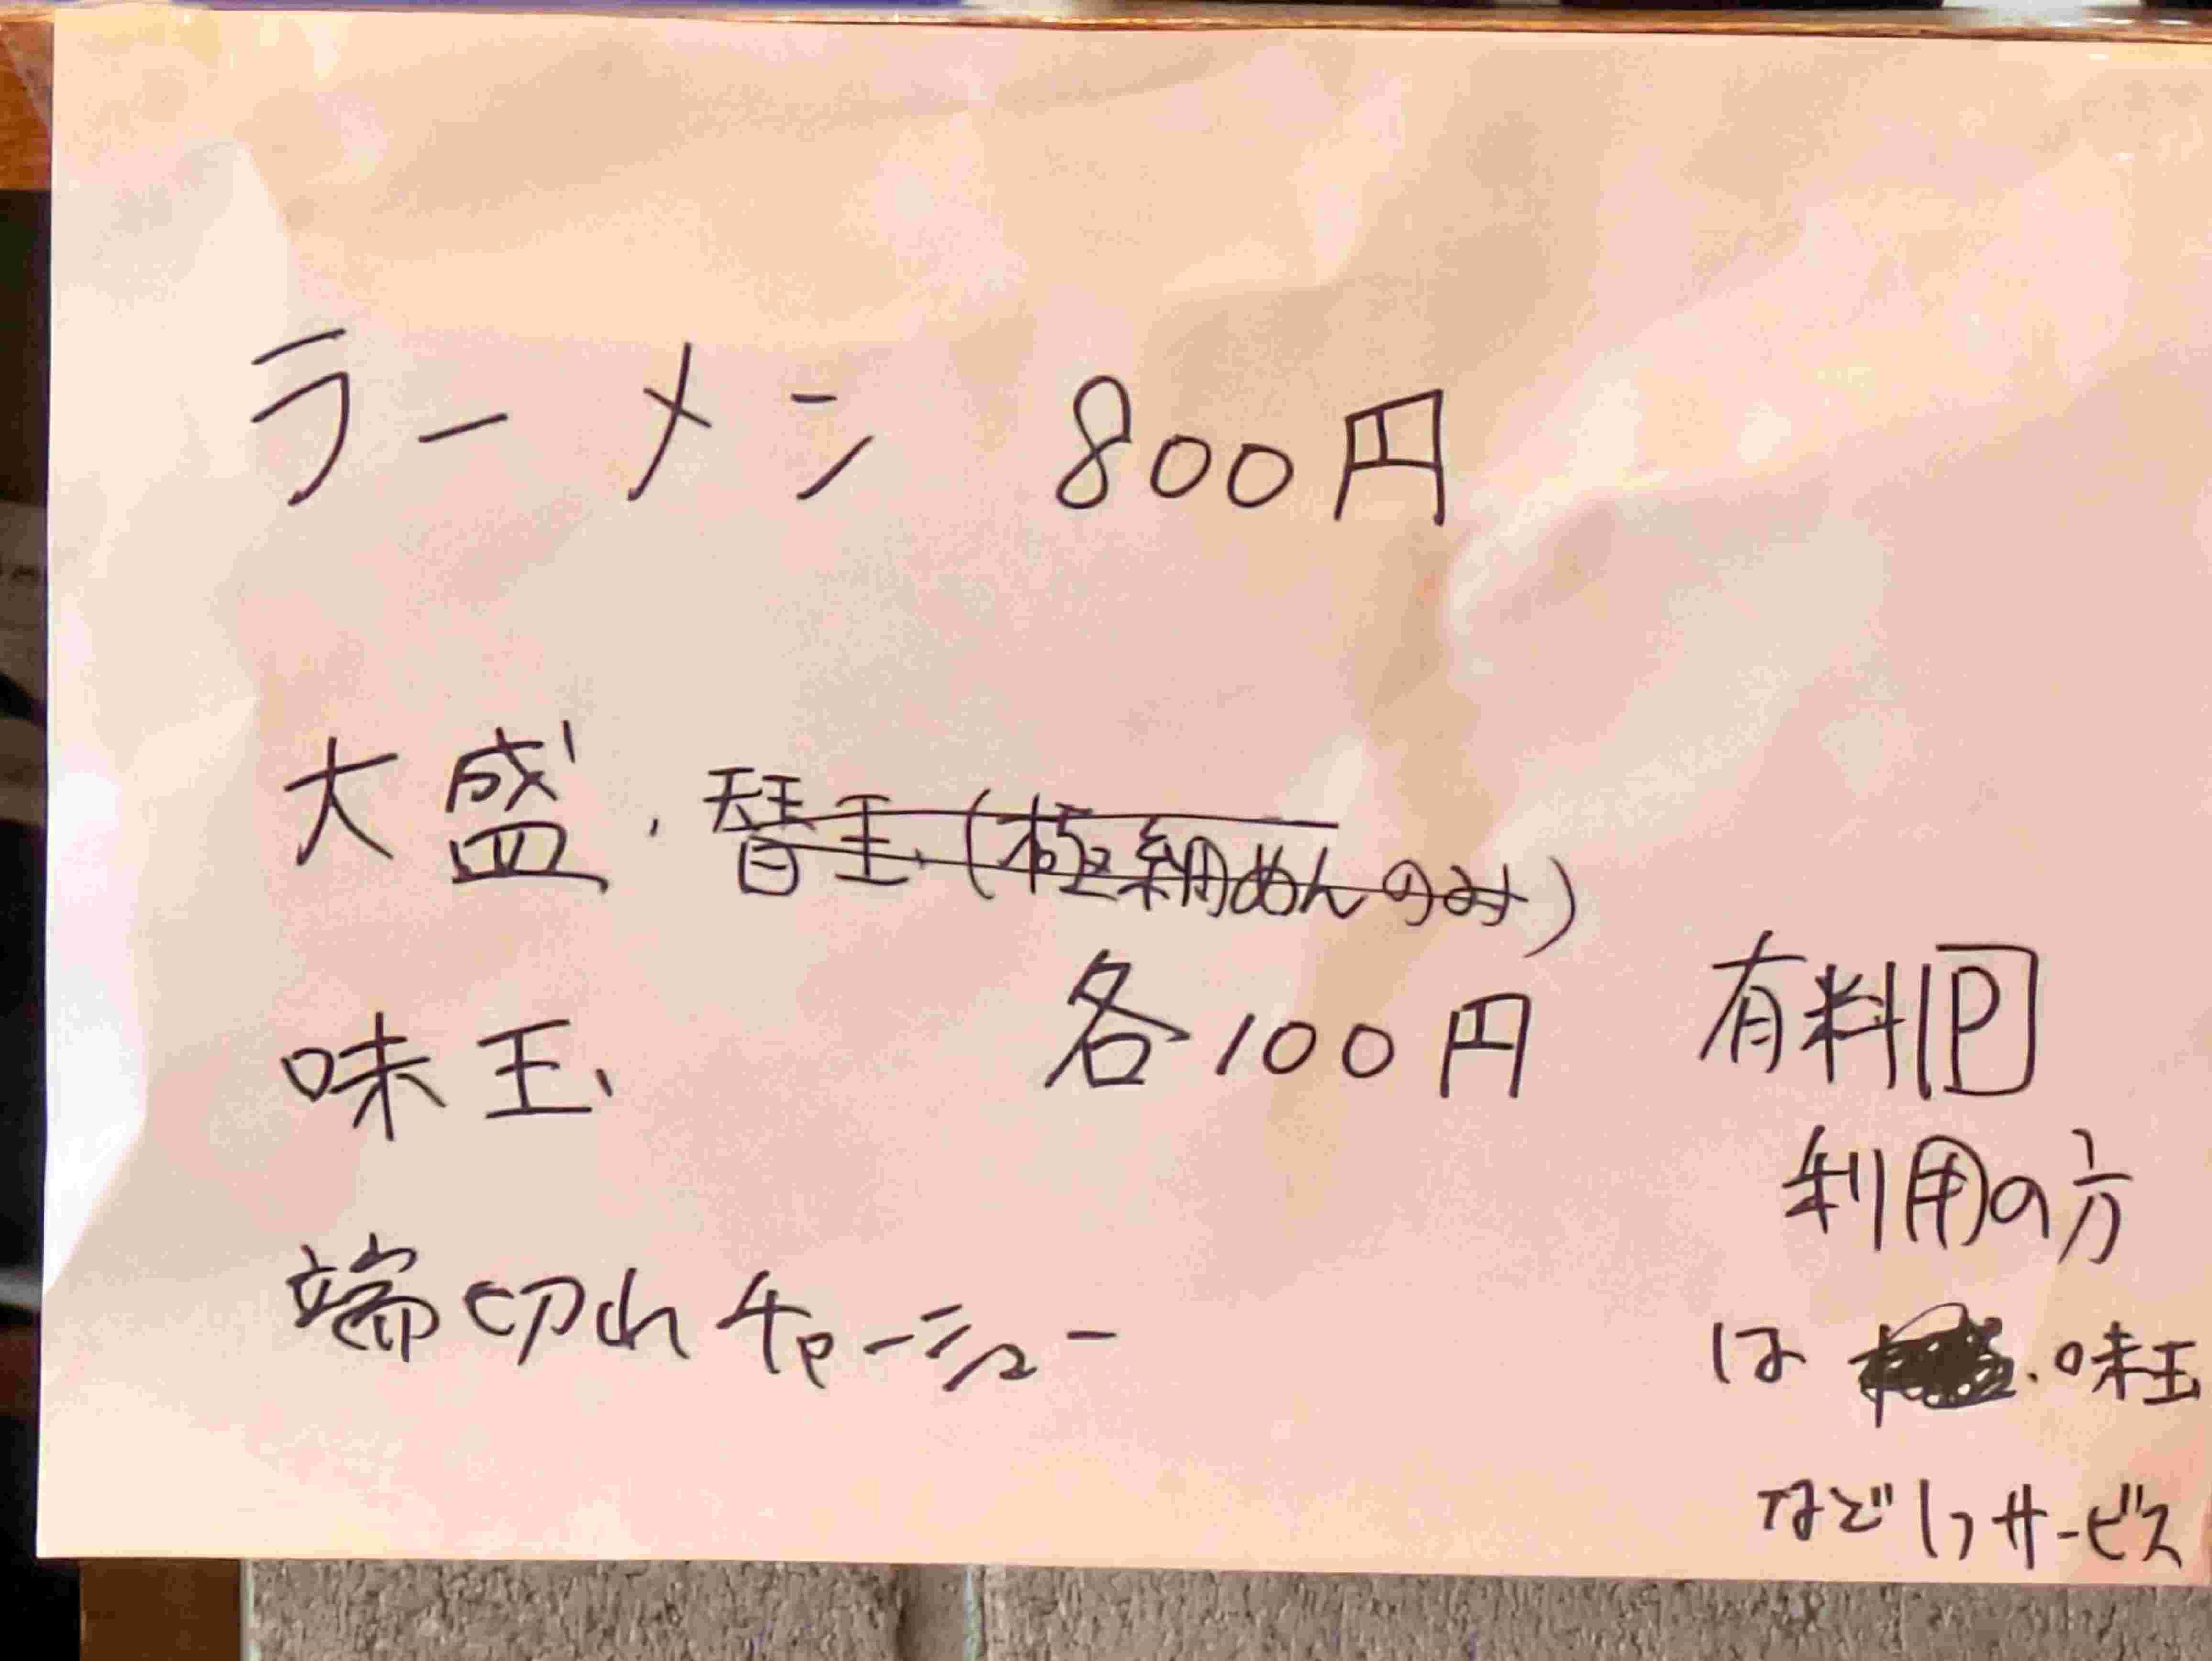 ラーメン 800円
大盛、替玉(極細めんのみ)
味玉、 各100円
端切れチャーシュー
有料P
利用の方
は 、味玉
など1つサービス